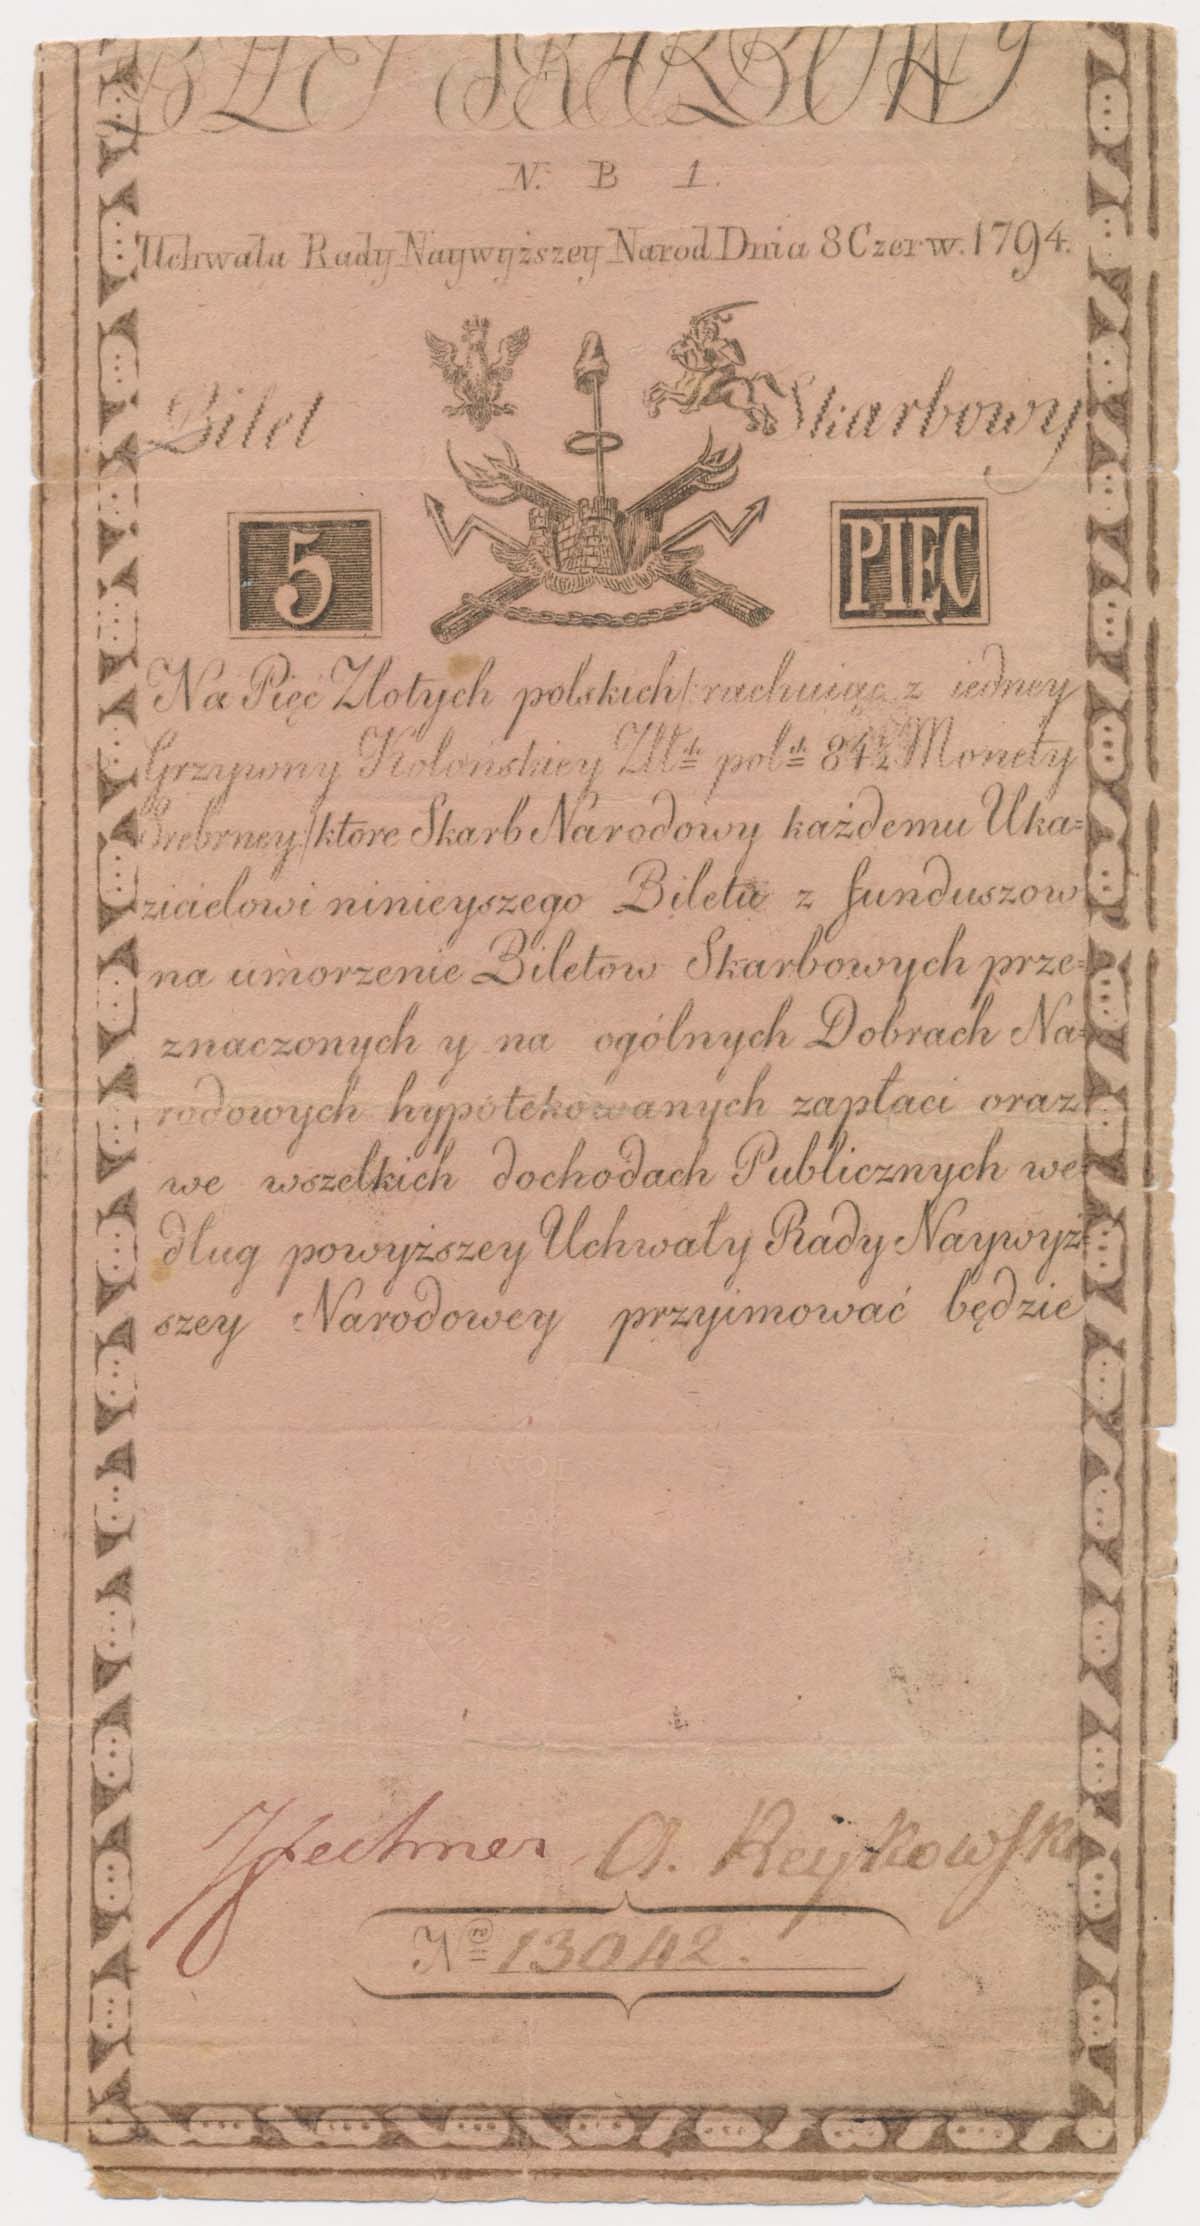 BILET SKARBOWY
N. B 1.
Uchwała Rady Naywyższey Narod Dnia 8 Czerw. 1794.
Bilet Skarbowy
5 PIĘC
Na Pięć Złotych polskich /:rachuiąc z iedney
Grzywny Kolońskiey Złłch polch 84½ Monety
Srebrney:/ktore Skarb Narodowy każdemu Uka=
zicielowi ninieyszego Biletu z funduszow
na umorzenie Biletow Skarbowych prze=
znaczonych y na ogólnych Dobrach Na=
rodowych hypotekowanych zapłaci oraz
we wszelkich dochodach Publicznych we=
dług powyższey Uchwały Rady Naywyż=
szey Narodowey przyimować będzie
Fechner A. Reykowski
No 13042.